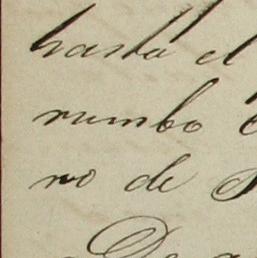 hasta el
rumbo
no de
De a